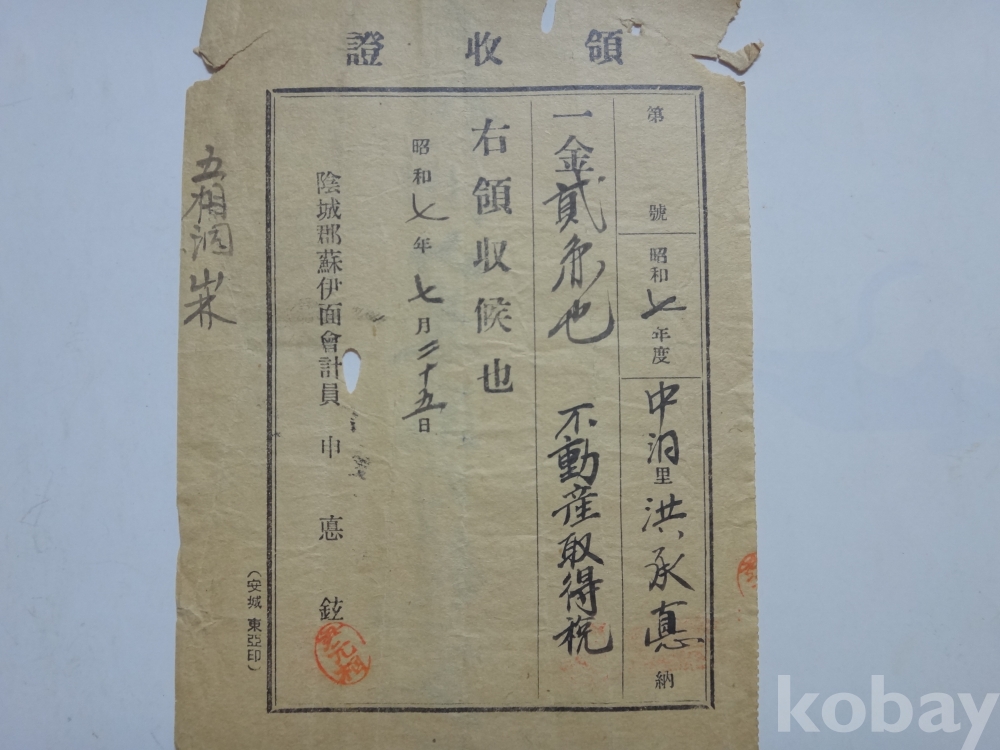 領收證
第 號
昭和七年度
中洞里 洪承憙 納
一金貳円也 不動産取得稅
右領收候也
昭和七年七月二十五日
陰城郡蘇伊面會計員 申 悳 鉉
(安城 東亞印)
kobay